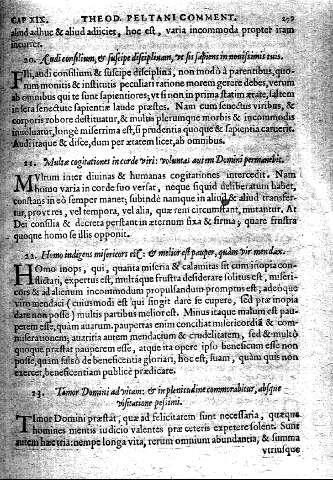 CAP XIX. THEOD. PELTANI COMMENT. 279
aliud adhuc & aliud adiicies, hoc est, varia incommoda propter iram
incurret.
20. Audi consilium, & suscipe disciplinam, ut sis sapiens in nouissimis tuis.
Fili, audi consilium & suscipe disciplinā, non modò à parentibus, quo-
rum monitis & institutis peculiari ratione morem gerere debes, verùm
ab omnibus qui te sunt sapientiores, vt si non in prima statim ætate, saltem
in sera senectute sapientiæ laude præstes. Nam cum senectus viribus, &
corporis robore destituatur, & multis plerumque morbis & incommodis
inuoluatur, longè miserrima est, si prudentia quoque & sapientia caruerit.
Audi itaque & disce, dum per ætatem licet, ab omnibus.
21. Multæ cogitationes in corde viri: voluntas autem Domini permanebit.
Multum inter diuinas & humanas cogitationes intercedit. Nam
homo varia in corde suo versat, neque siquid deliberatum habet,
constans in eò semper manet; subinde namque in aliud & aliud transfer-
tur, pro vt res, vel tempora, vel alia, quæ rem circumstant, mutantur. At
Dei consilia & decreta perstant in æternum fixa & firma; quare frustra
quoque homo se illis opponit.
22. Homo indigens misericors est: & melior est pauper, quàm vir mendax.
Homo inops, qui, quanta miseria & calamitas sit cum inopia con-
flictari, expertus est, multáque frustra desiderare solitus est, miseri-
cors & ad alienum incommodum propulsandum promptus est; adeoque
viro mendaci (cuiusmodi est qui fingit dare se cupere, sed præ inopia
dare non posse) multis partibus melior est. Minus itaque malum est pau-
perem esse, quàm auarum. paupertas enim conciliat misericordiā & com-
miserationem; auaritia autem mendacium & crudelitatem, sed & multò
quoque præstat pauperem esse, atque ita opere ipso beneficum esse non
posse, quàm falsò de beneficentia gloriari, hoc est, suam, quàm quis non
exercet, beneficentiam publicè prædicare.
23. Timor Domini ad vitam: & in plenitudine commorabitur, absque
visitatione pessimi.
Timor Domini præstat, quæ ad felicitatem sunt necessaria, quæque
homines mentis iudicio valentes præ ceteris expetere solent. Sunt
autem hæc tria: nempe longa vita, rerum omnium abundantia, & summa
vtriusque